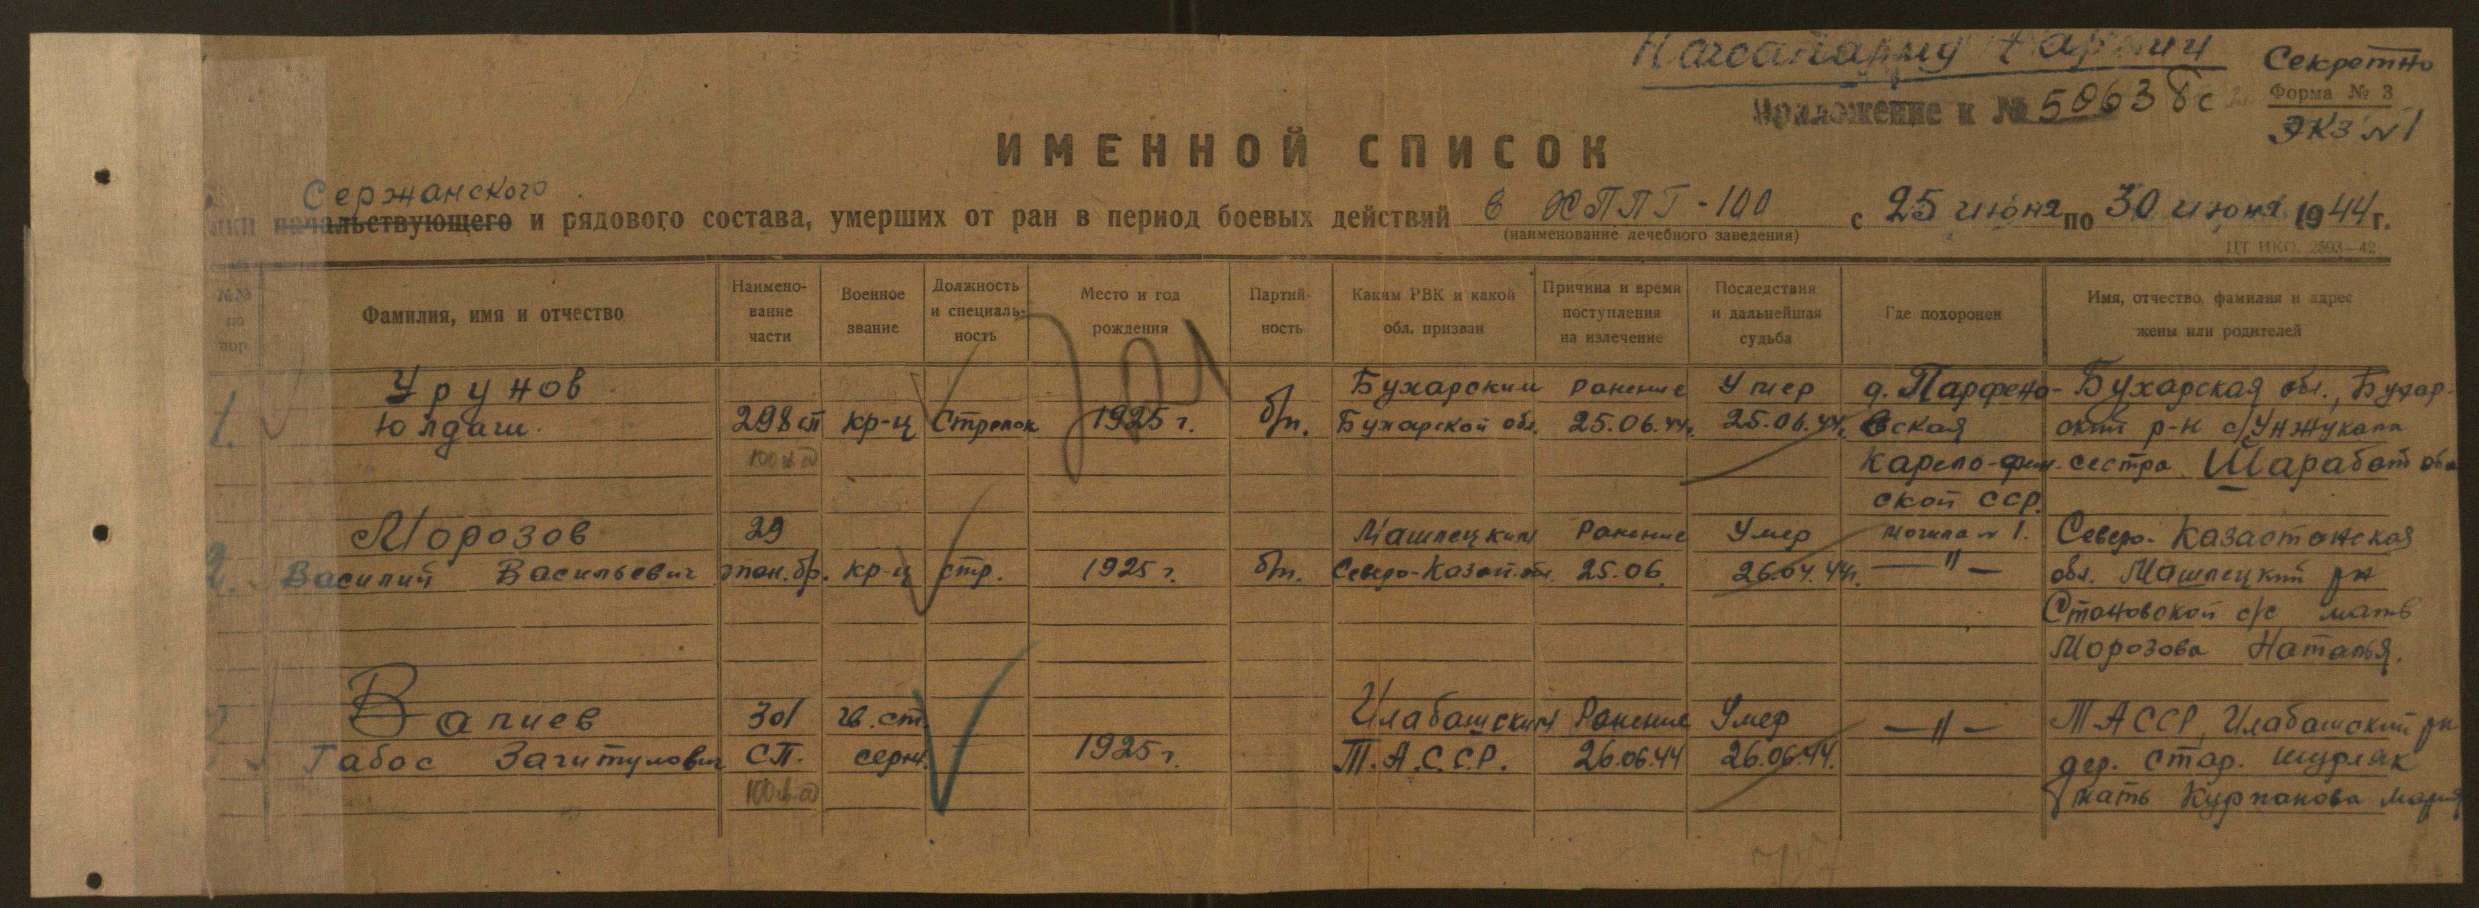 Секретно
Приложение к № 50638с
Форма № 3
экз № 1
ИМЕННОЙ СПИСОК
Сержанского
начальствующего и рядового состава, умерших от ран в период боевых действий в ХППГ-100 с 25 июня по 30 июня 1944 г.
(наименование лечебного заведения)
№№ по пор.
Фамилия, имя и отчество
Наименование части
Военное звание
Должность и специальность
Место и год рождения
Партийность
Каким РВК и какой обл. призван
Причина и время поступления на излечение
Последствия и дальнейшая судьба
Где похоронен
Имя, отчество, фамилия и адрес жены или родителей
1. Урунов Юлдаш.
298 сп
100 гв сд
кр-ц
Стрелок
1925 г.
б/п.
Бухарским
Бухарской обл.
Ранение
25.06.44г.
Умер
25.06.44г.
д. Парфено-
вская
Карело-фин-
ской ССР.
могила № 1.
Бухарская обл., Бухар-
ский р-н с/Унжукала
сестра Шарабат
2. Морозов
Василий Васильевич
29
тан. бр.
кр-ц
стр.
1925 г.
б/п.
Машлецким
Северо-Казах. обл.
Ранение
25.06.
Умер
26.04.44г.
— " —
Северо-Казахстанская
обл. Машлецкий рн
Становской с/с мать
Морозова Наталья.
Валиев
Габос Загитулович
301
СП.
100 гв сд
гв. ст.
серж.
1925 г.
Илабашским
Т.А.С.С.Р.
Ранение
26.06.44
Умер
26.06.44.
— " —
ТАССР, Илабашский рн
дер. Стар. Шурляк
мать Курпанова Мария